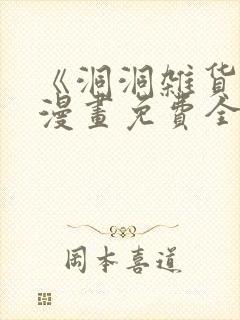 《洞洞雑貨
漫畫免費全
岡本喜道